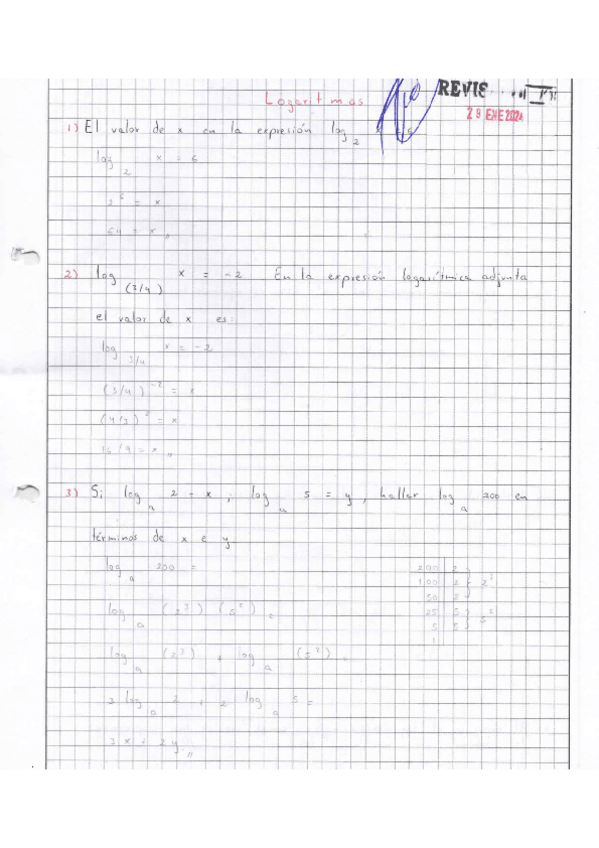 Logaritmos
REVIS
29 ENE 2024
1) El valor de x en la expresión log₂
log₂ x = 6
2⁶ = x
64 = x,,
2) log (3/4) x = -2 En la expresión logarítmica adjunta
el valor de x es:
log 3/4 x = -2
(3/4)⁻² = x
(4/3)² = x
16/9 = x,,
3) Si logₐ 2 = x ; logₐ 5 = y , hallar logₐ 200 en
términos de x e y
logₐ 200 =
200 2
100 2 2³
50 2
25 5
5 5 5²
1
logₐ (2³) (5²) =
logₐ (2³) + logₐ (5²) =
3 logₐ 2 + 2 logₐ 5 =
3x + 2y,,